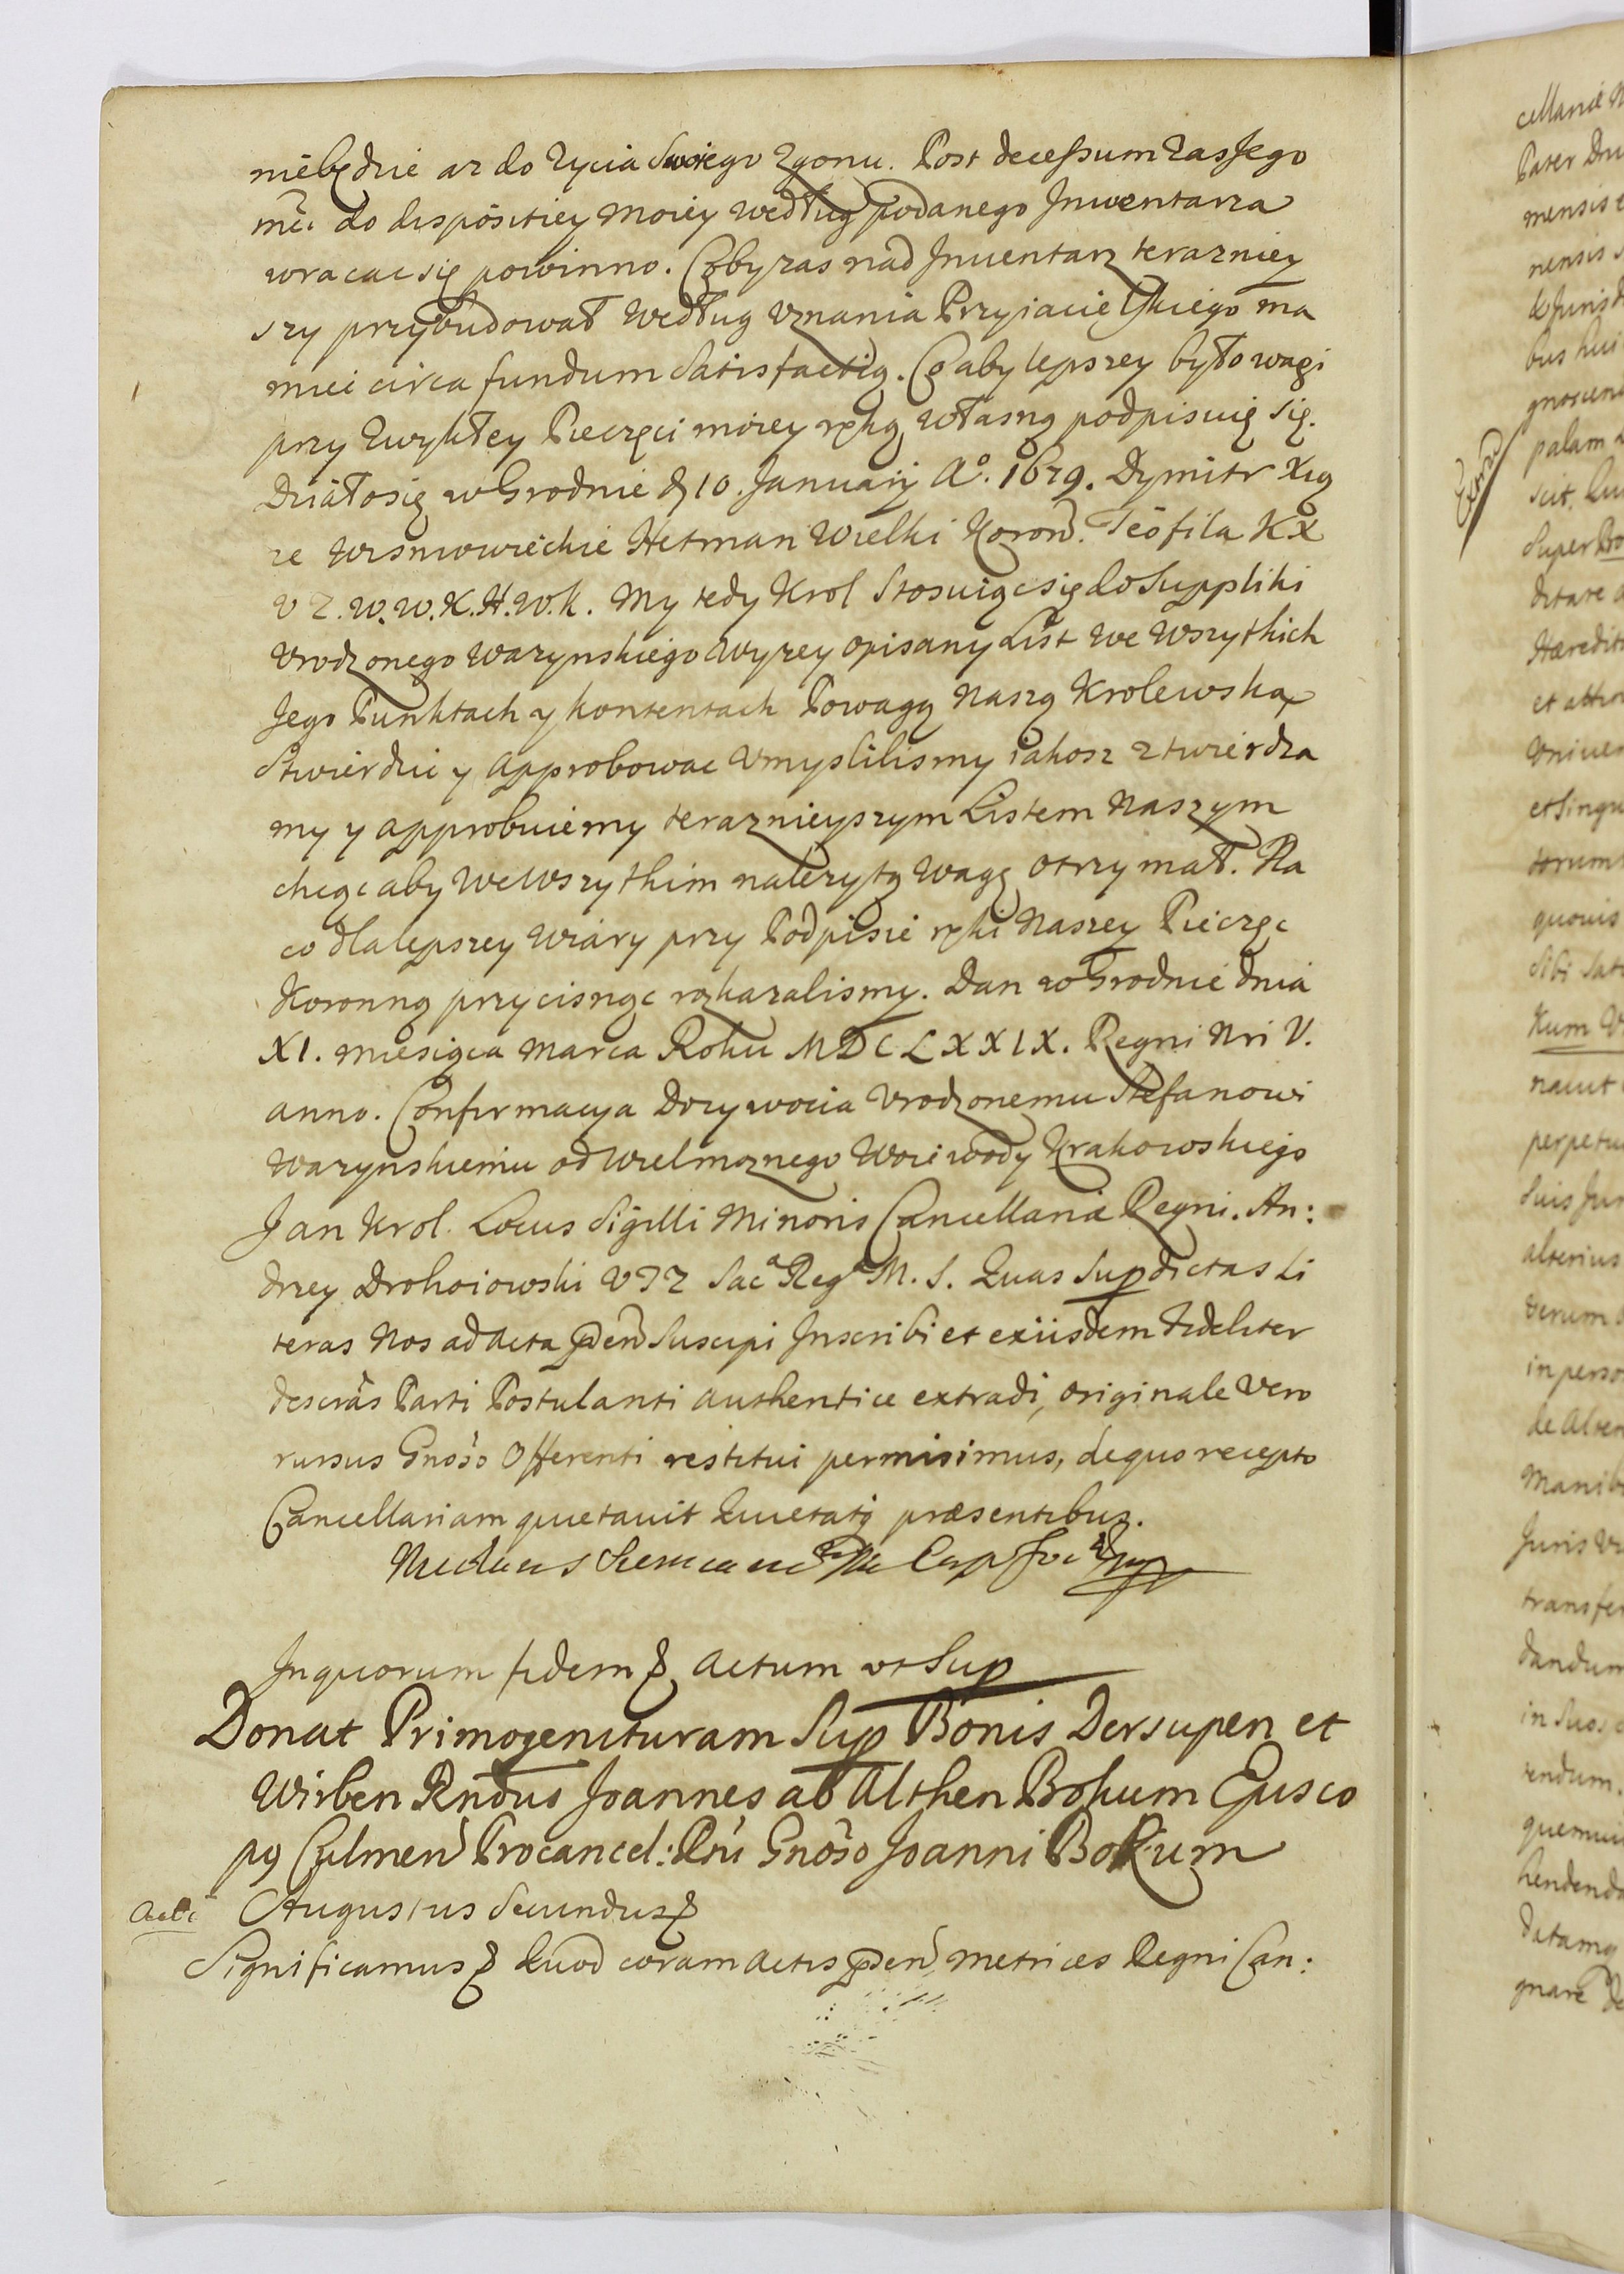 niebędzie az do Zycia Swoiego Zgonu. Post decessum zas Jego
mci do dispositiey moiey według podanego Inwentarza
wracac się powinno. Coby zas nad Inuentarz terazniey
szy przybudował według Vznania Przyiacielskiego ma
miec circa fundum Satisfactią. Co aby lepszey było wagi
przy Zwykłey Pieczęci moiey ręką własną podpisuię się.
Działo się w Grodnie d 10. January A⁰. 1679. Dymitr Xią
ze Wisniowieckie Hetman Wielki Koron. Teofila K X
V Z. W. W. K. H. W. K. My tedy Krol Stosuiąc się do Suppliki
Vrodzonego Wazynskiego Wyzey opisany List we Wszytkich
Jego Punktach y kontentach Powagą Naszą Krolewską
Stwierdzic y approbowac Vmyslilismy iakosz ztwierdza
my y approbuiemy terazniejszym Listem Naszym
chcąc aby We Wszytkim nalezytą Wagę otrzymał. Na
co dla lepszey Wiary przy Podpisie ręki Naszey Pieczęc
Koronną przycisnąc rozkazalismy. Dan w Grodnie dnia
XI. miesiąca Marca Roku MDCLXXIX. Regni Nri V.
anno. Confirmacya Dozywocia Vrodzonemu Stefanowi
Wazynskiemu od Wielmoznego Woiewody Krakowskiego
Jan Krol. Locus Sigilli Minoris Cancellariæ Regni. An:
drzey Drohoiowski V J Z Sacᵃ Regᵃ M. S. Quas Supdictas Li
teras Nos ad Acta pden Suscipi Inscribi et exiisdem fideliter
descras Parti Postulanti authentice extradi, originale Vero
rursus Gnoso Offerenti restitui permisimus, de quo recepto
Cancellariam quietauit Quietatq præsentibus.
In quorum fidem & Actum vt Sup
Donat Primogenituram Sup Bonis Dersupen et
Wirben Rndus Joannes ab Althen Bokum Episco
pq Culmen Procancel: Rni Gnoso Joanni Bokum
Augustus Secundus &
Significamus & Quod coram Actis pden metrices Regni Can: